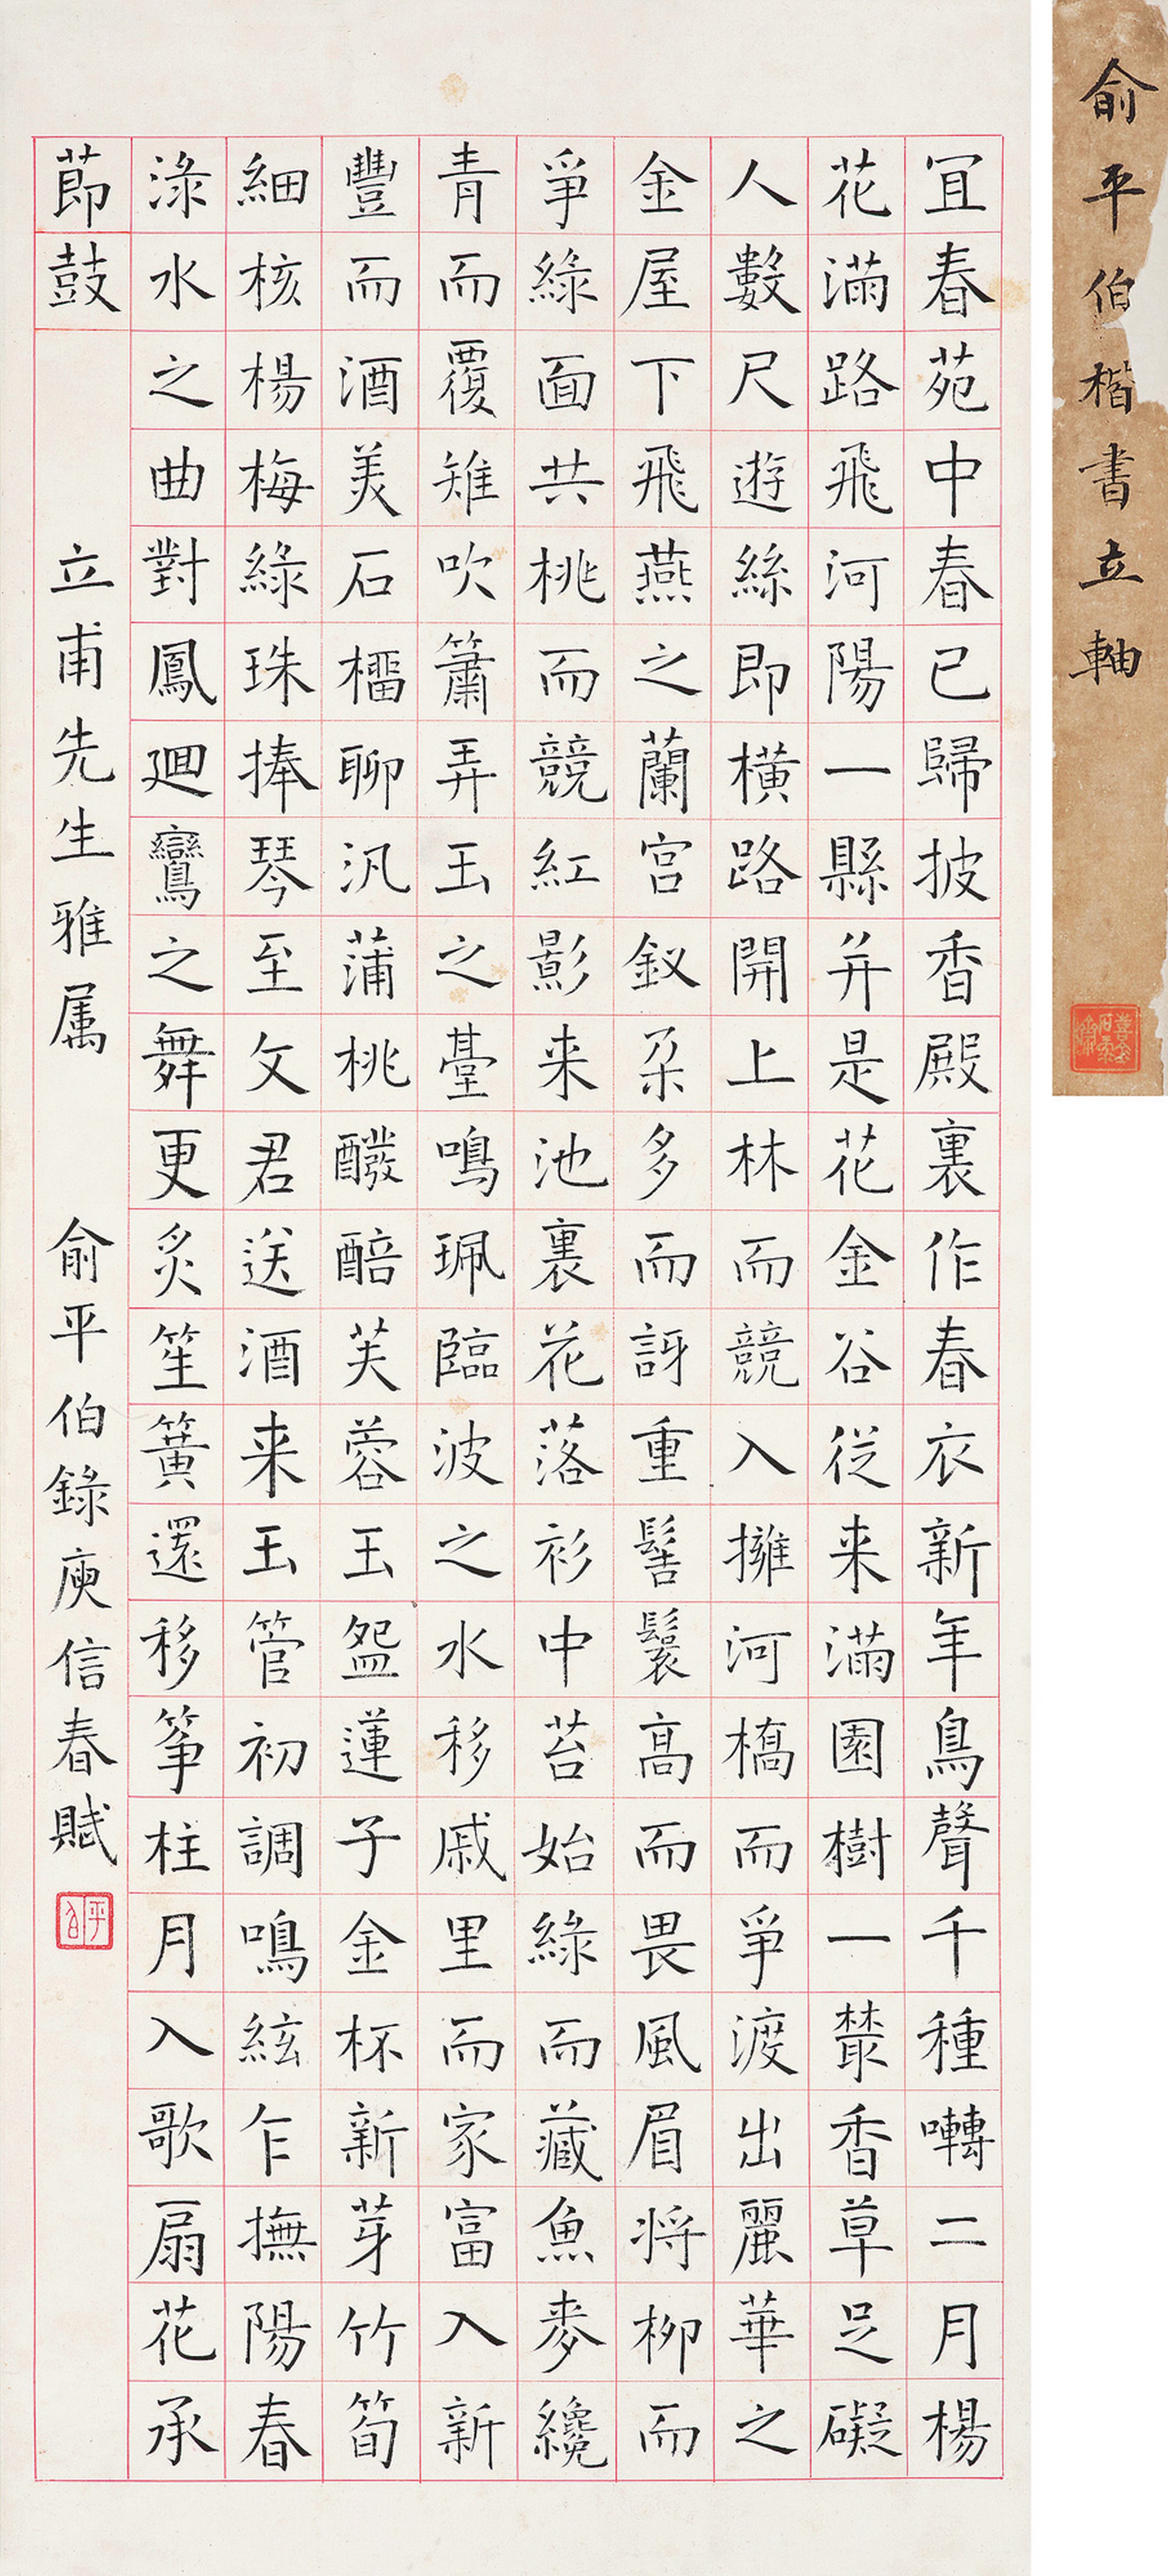 俞平伯楷書立軸
宜春苑中春已歸披香殿裏作春衣新年鳥聲千種囀二月楊
花滿路飛河陽一縣并是花金谷從来滿園樹一叢香草足礙
人數尺遊絲即橫路開上林而競入擁河橋而爭渡出麗華之
金屋下飛燕之蘭宮釵朵多而訝重髻鬟高而畏風眉将柳而
爭綠面共桃而競紅影来池裏花落衫中苔始綠而藏魚麥纔
青而覆雉吹簫弄玉之臺鳴珮臨波之水移戚里而家富入新
豐而酒美石榴聊汎蒲桃醱醅芙蓉玉盌蓮子金杯新芽竹筍
細核楊梅綠珠捧琴至文君送酒来玉管初調鳴絃乍撫陽春
淥水之曲對鳳迴鸞之舞更炙笙簧還移筝柱月入歌扇花承
節鼓
立甫先生雅属
俞平伯錄庾信春賦
平伯